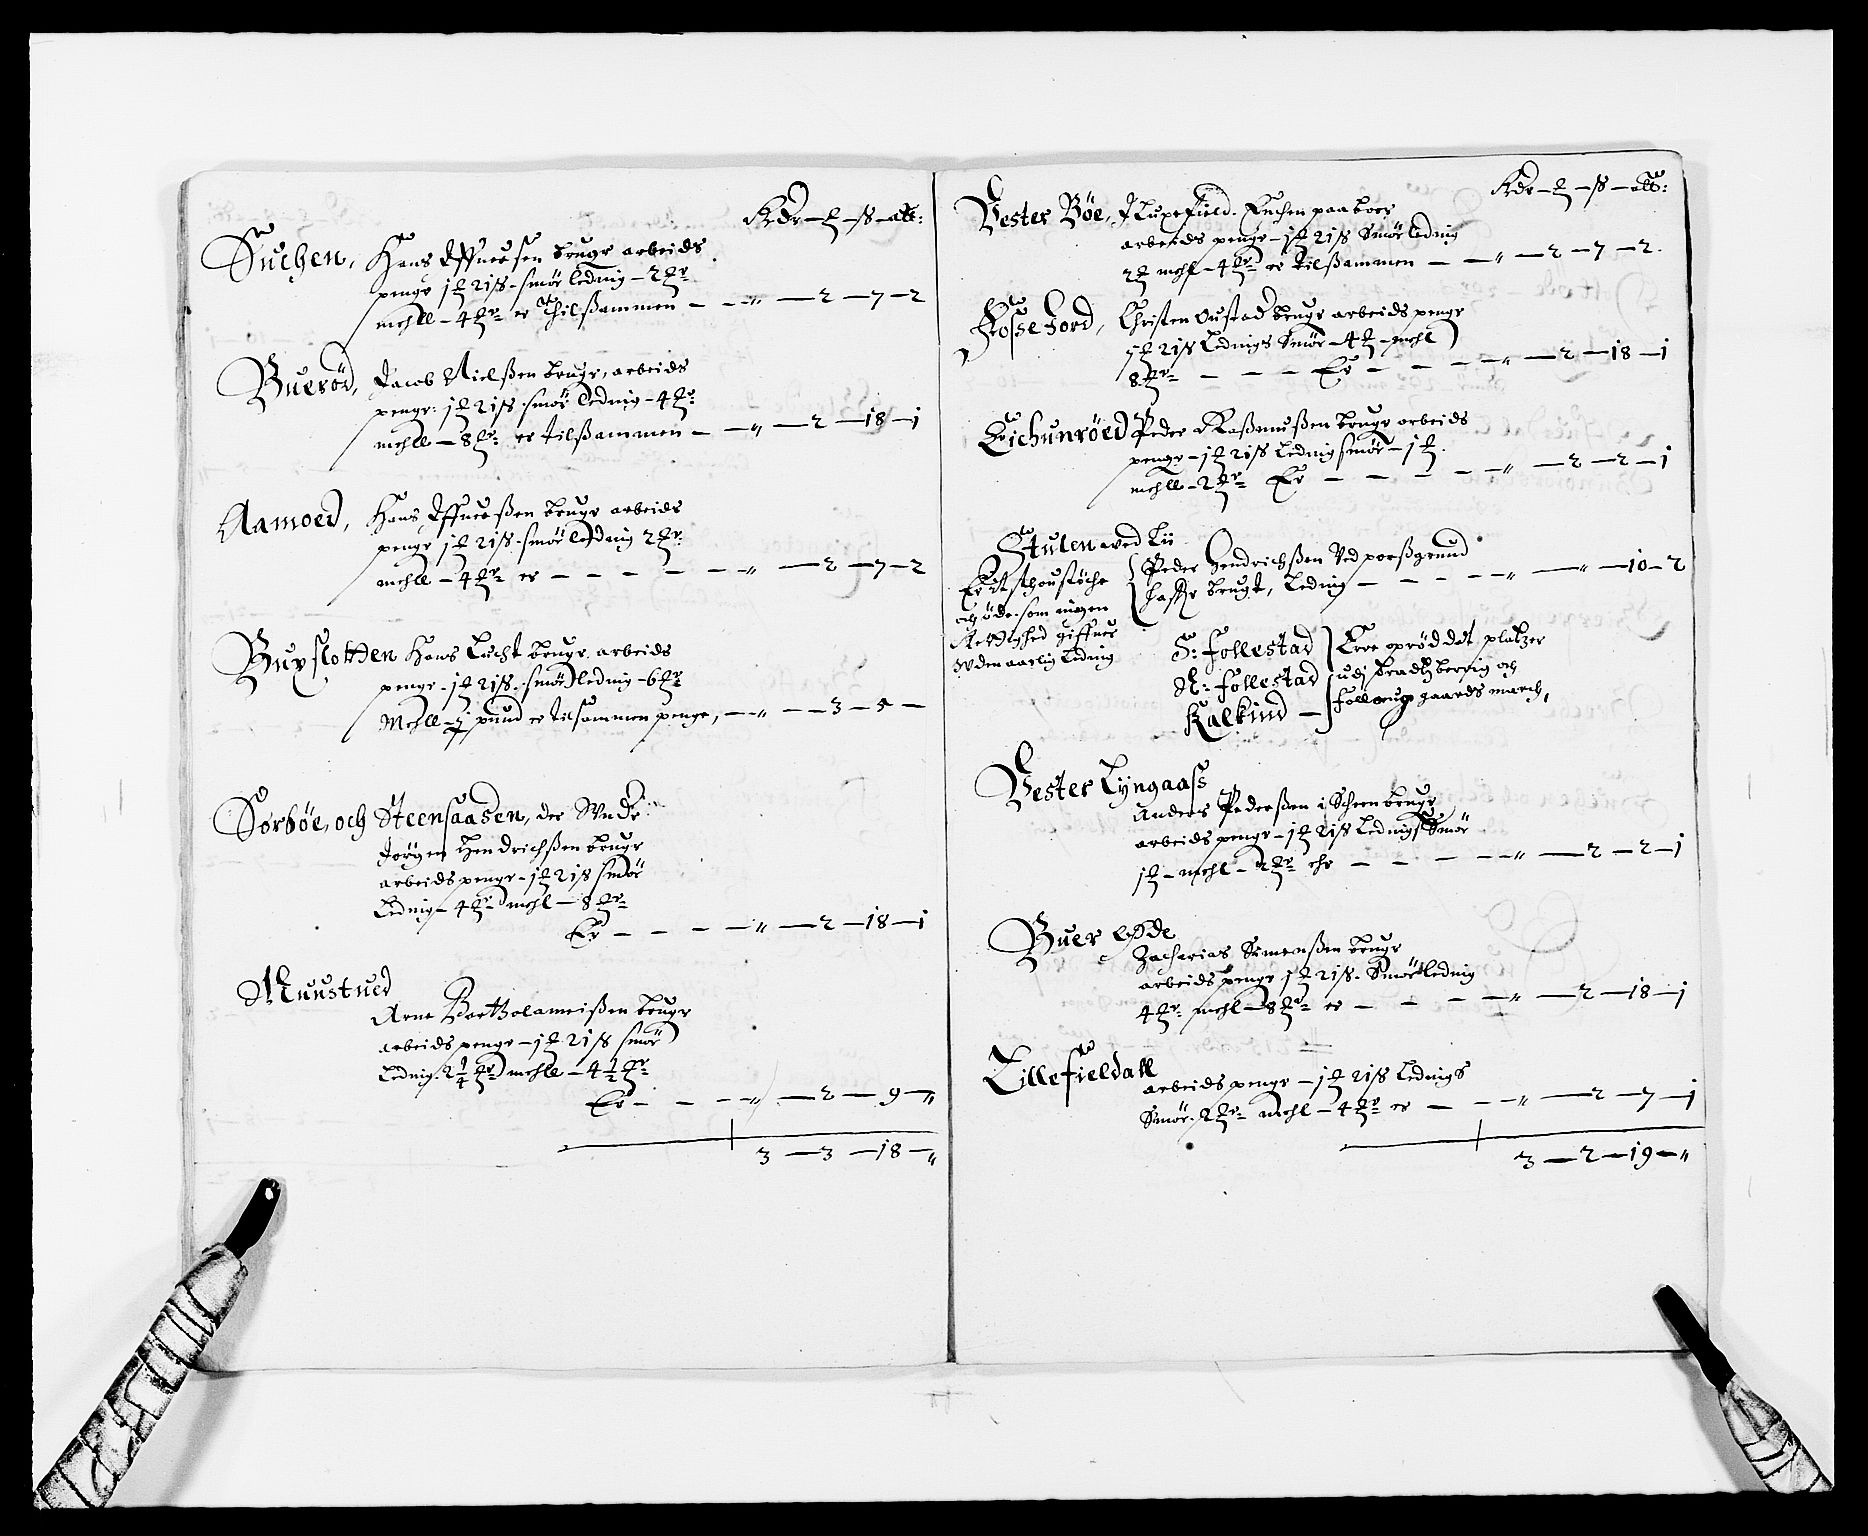 Rdr — — ß — alb:
Suchen, Hans brugr arbeids
penge 1 21 ß. smør leding — 2
mehll — 4 er thilßammen — — „ — 2 — 7 — 2
Buerød, Jacob Nielßen brugr, arbeids
penge: 1 21 ß. smør leding — 4
mehll — 8 er tilßammen — — „ — 2 — 18 — 1
Aamoed, Hans brugr arbeids
penge 1 21 ß. smør leding 2
mehll — 4 er — — — — — „ — 2 — 7 — 2
Buxslotten Hans Lucht brugr. arbeids
penge. 1 21 ß. smør leding — 6
Mehll — pund er tilsammen penge, — „ — 3 — 5 —
Sorbøe, och Steensaasen, der Unde:
Jørgen Hendrichßen brugr
arbeids penge — 1 21 ß smør
Leding — 4 mehl — 8
Er — — — — „ — 2 — 18 — 1
Muustued
Arne Bartholameißen brugr
arbeids penge — 1 21 ß smør
Leding. 2 1/4 mehll — 4 1/2
Er — — — „ — 2 — 9 — „
3 — 3 — 18 — „
Rdr — — ß — alb:
Vester Bøe, paaboer
arbeids penge — 1 21 ß Smør leding
2 mehl — 4 er tilßammen — — „ — 2 — 7 — 2.
Fosse Jord, Christen Oustad brugr arbeids penge
21 ß Ledings Smør — 4 — mehl
8 — — — Er — — — „ — 2 — 18 — 1
Eichunrøed Peder Raßmußen brugr arbeids
penge — 1 21 ß Leding smør — 1
mehll — 2 Er — — — — „ — 2 — 2 — 1
Stulen wed Lii
Er Et
och øde. som ingen
Rettighed giffues
Uden aarlig Leding
Peder Hendrichßen Ved porßgrund
haffr brugt, Leding — — — — „ — „ — 10 — 2
S: Follestad
N: Follestad
Kalkind —
Ere øde platzer
udj bradtzberrig och
Follaug gaards march,
Vester Lyngaass
Anders Pederßen i Scheen brugr
arbeids penge — 1 21 ß Ledings Smør
1 — mehl — 2 ehr — — — — „ — 2 — 2 — 1
Buer øde
Zacharias Simenßen brugr
arbeids penge 1 21 ß. Smør leding
4 mehl — 8 er — — — „ — 2 — 18 — 1
Lillefieldall
arbeids penge — 1 21 ß Ledings
Smør. 2 mehl — 4 er — — „ — 2 — 7 — 1
3 — 2 — 19 — „